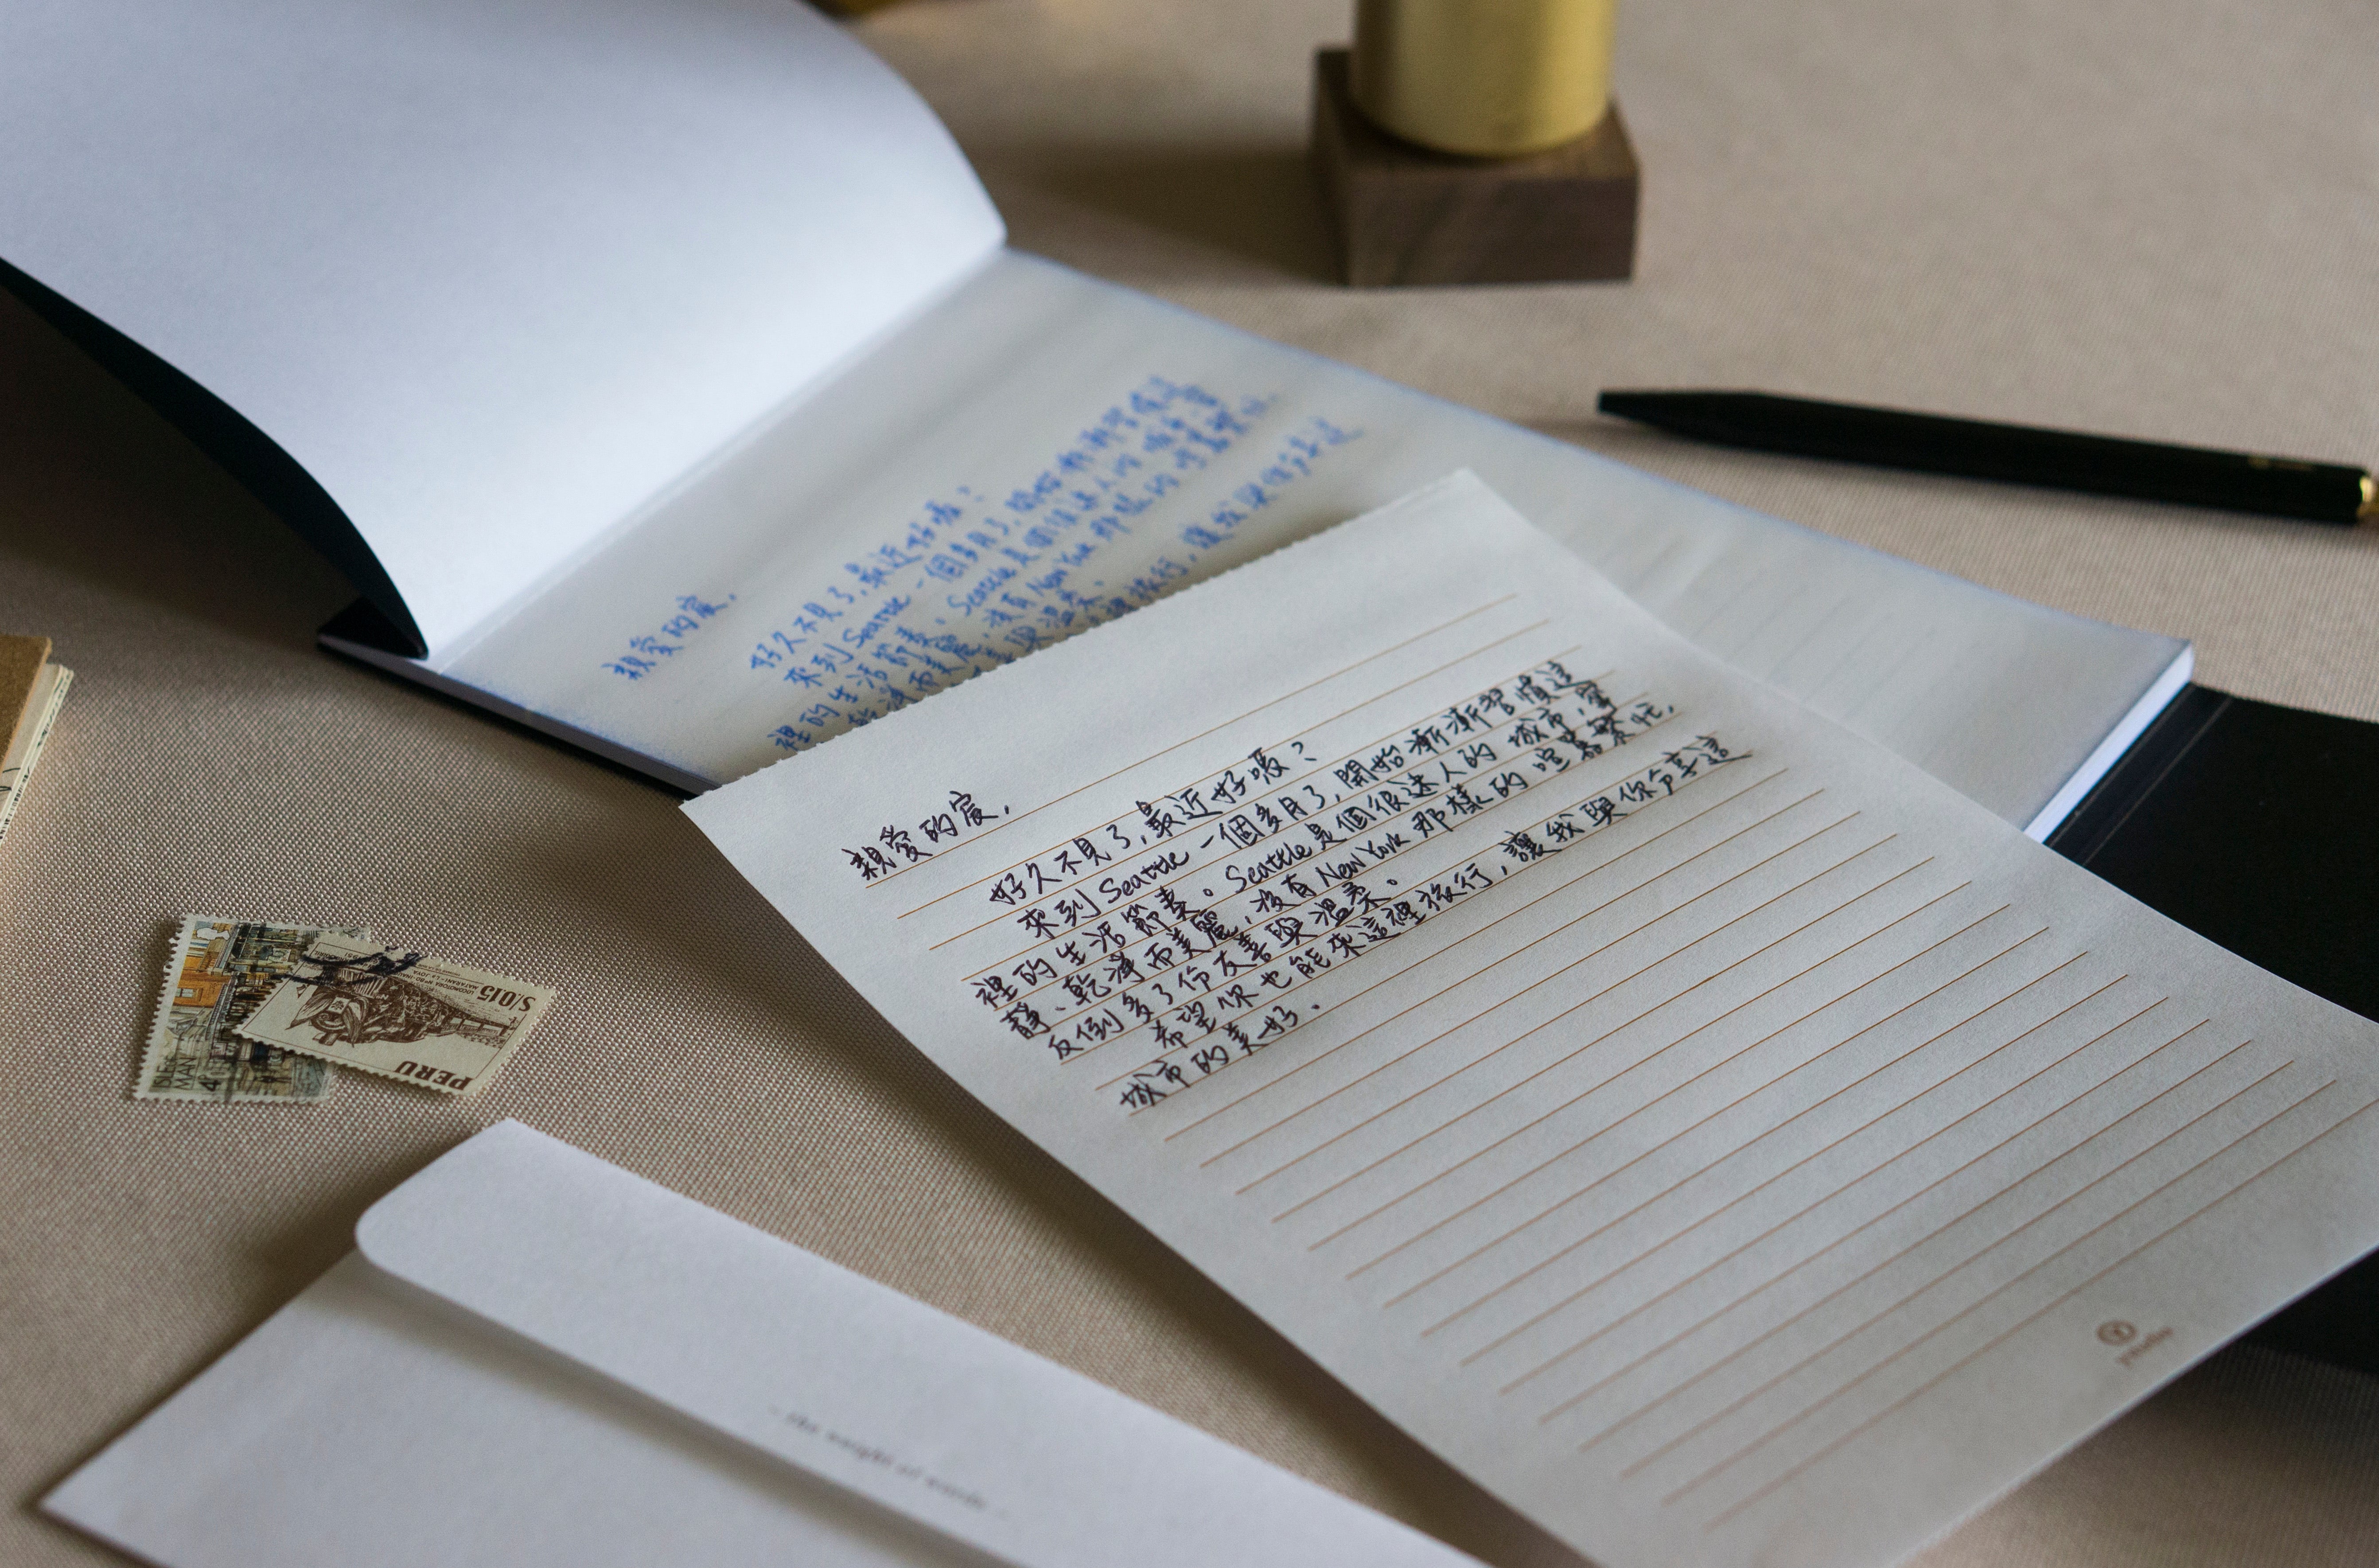 親愛的宸,
好久不見了,最近好嗎?
來到 Seattle 一個多月了,開始漸漸習慣這
裡的生活節奏。Seattle 是個很迷人的城市,寧
靜、乾淨而美麗,沒有 New York 那樣的喧囂繁忙,
反倒多了份友善與溫柔。
希望你也能來這裡旅行,讓我與你分享這
城市的美好.
親愛的宸,
好久不見了,最近好嗎?
來到 Seattle 一個多月了,開始漸漸習慣這
裡的生活節奏。Seattle 是個很迷人的城市,寧
乾淨而美麗,沒有 New York 那樣的喧囂繁忙,
與溫柔,
裡旅行,讓我與你分享這
ISLE
MAN
4P
S/.015
PERU
LOCOMOTORA Nº 80
MATARANI - LA JOYA
- the weight of words -